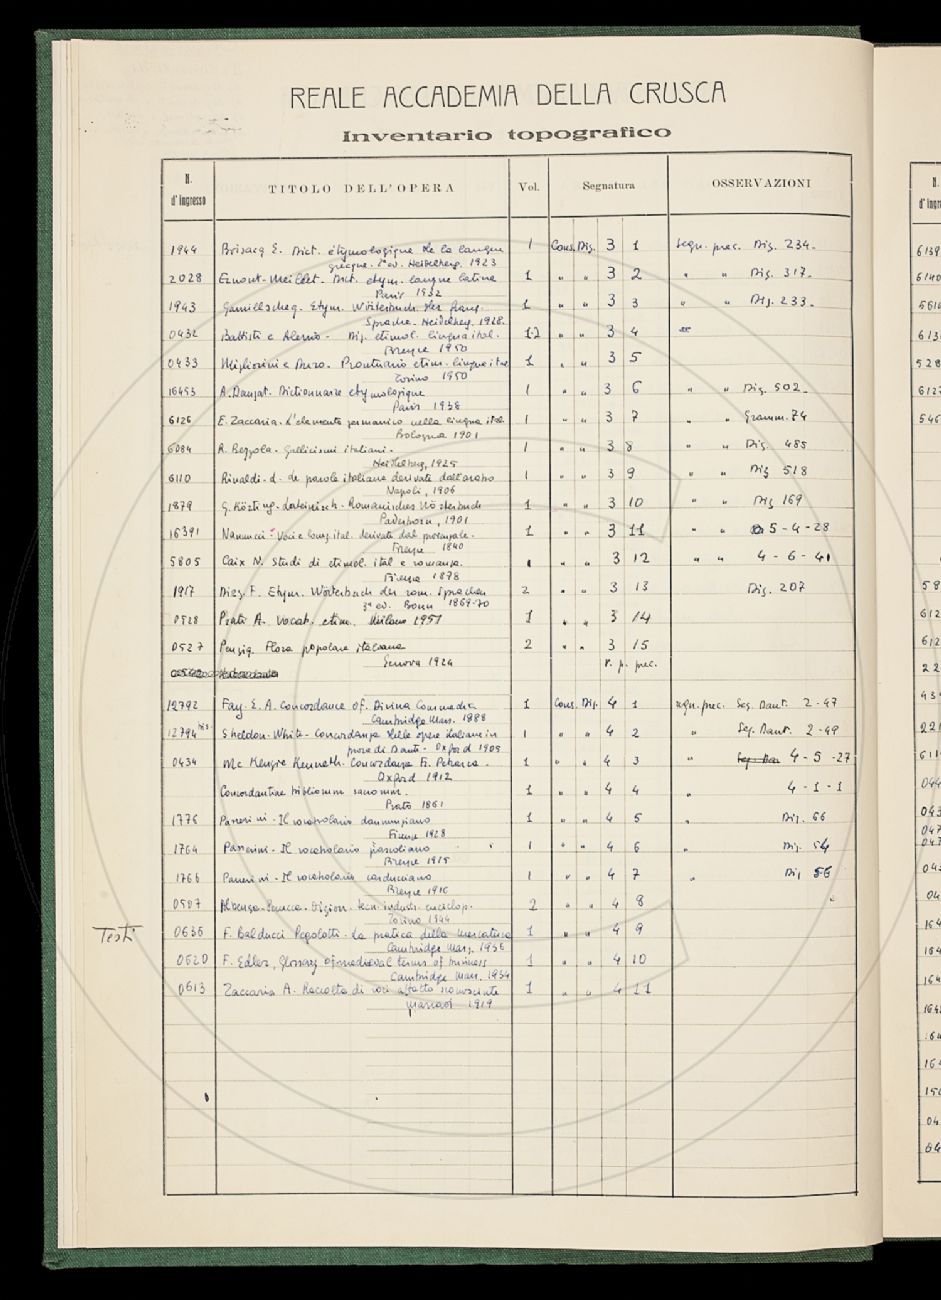 REALE ACCADEMIA DELLA CRUSCA
Inventario topografico
N. d'Ingresso TITOLO DELL'OPERA Vol. Segnatura OSSERVAZIONI
1944 Boisacq E. Dict. étymologique de la langue 1 Cons. Diz. 3 1 segn. prec. Diz. 234.
grecque. 2ª ed. Heidelberg. 1923
2028 Ernout-Meillet. Dict. etym. langue latine 1 " " 3 2 " " Diz. 317.
Paris 1932
1943 Gamillscheg. Etym. Wörterbuch der franz. 1 " " 3 3 " " Diz. 233.
Sprache. Heidelberg. 1928.
0432 Battisti e Alessio - Diz. etimol. lingua ital. " " 3 4
Firenze 1950
0433 Migliorini e Duro. Prontuario etim. lingua ital 1 " " 3 5
Torino 1950
16453 A. Dauzat. Dictionnaire etymologique 1 " " 3 6 " " Diz. 502.
Paris 1938
6126 E. Zaccaria. L'elemento germanico nella lingua ital. 1 " " 3 7 " " Gramm. 74
Bologna 1901
6084 R. Bezzola. Gallicismi italiani. 1 " " 3 8 " " Diz. 485
Heidelberg, 1925
6110 Rinaldi. d. Le parole italiane derivate dall'arabo 1 " " 3 9 " " Diz 518
Napoli, 1906
1879 G. Körting. Lateinisch-Romanisches Wörterbuch 1 " " 3 10 " " Diz 169
Paderborn, 1901
16391 Nannucci - Voci e locuz. ital. derivate dal provenzale. 1 " " 3 11 " " 5-4-28
Firenze 1840
5805 Caix N. Studi di etimol. ital e romanza. 1 3 12 " " 4-6-41
Firenze 1878
1917 Diez F. Etym. Wörterbuch der rom. Sprachen 2 " " 3 13 Diz. 207
3ª ed. Bonn 1869-70
0528 Prati A. Vocab. etim. Milano 1951 1 " " 3 14
0527 Penzig. Flora popolare italiana 2 " " 3 15
Genova 1924 v. p. prec.
12792 Fay. E. A. Concordance of. Divina Commedia 1 Cons. Diz. 4 1 segn. prec. Seg. Dant. 2-47
Cambridge Mass. 1888
12794 bis. Sheldon-White - Concordanza delle opere italiane in 1 " " 4 2 " Seg. Dant. 2-49
prosa di Dante - Oxford 1905
0434 Mc Kenzie Kenneth. Concordanza F. Petrarca. 1 " " 4 3 " 4-5-27
Oxford 1912
Concordantiae bibliorum sacrorum. 1 " " 4 4 " 4-1-1
Prato 1861
1776 Passerini - Il vocabolario dannunziano 1 " " 4 5 " Diz. 66
Firenze 1928
1764 Passerini - Il vocabolario pascoliano 1 " " 4 6 " Diz. 54
Firenze 1915
1766 Passerini - Il vocabolario carducciano 1 " " 4 7 " Diz 56
Firenze 1916
0507 Albenga-Perucca. Dizion. tecn. industr. enciclop. 2 " " 4 8
Torino 1944
Testi 0636 F. Balducci Pegolotti. La pratica della mercatura 1 " " 4 9
Cambridge Mass. 1936
0620 F. Edler, Glossary of mediaeval terms of business 1 " " 4 10
Cambridge Mass. 1934
0613 Zaccaria A. Raccolta di voci affatto sconosciute 1 " " 4 11
Marradi 1919
N. d'Ingr
6139
6140